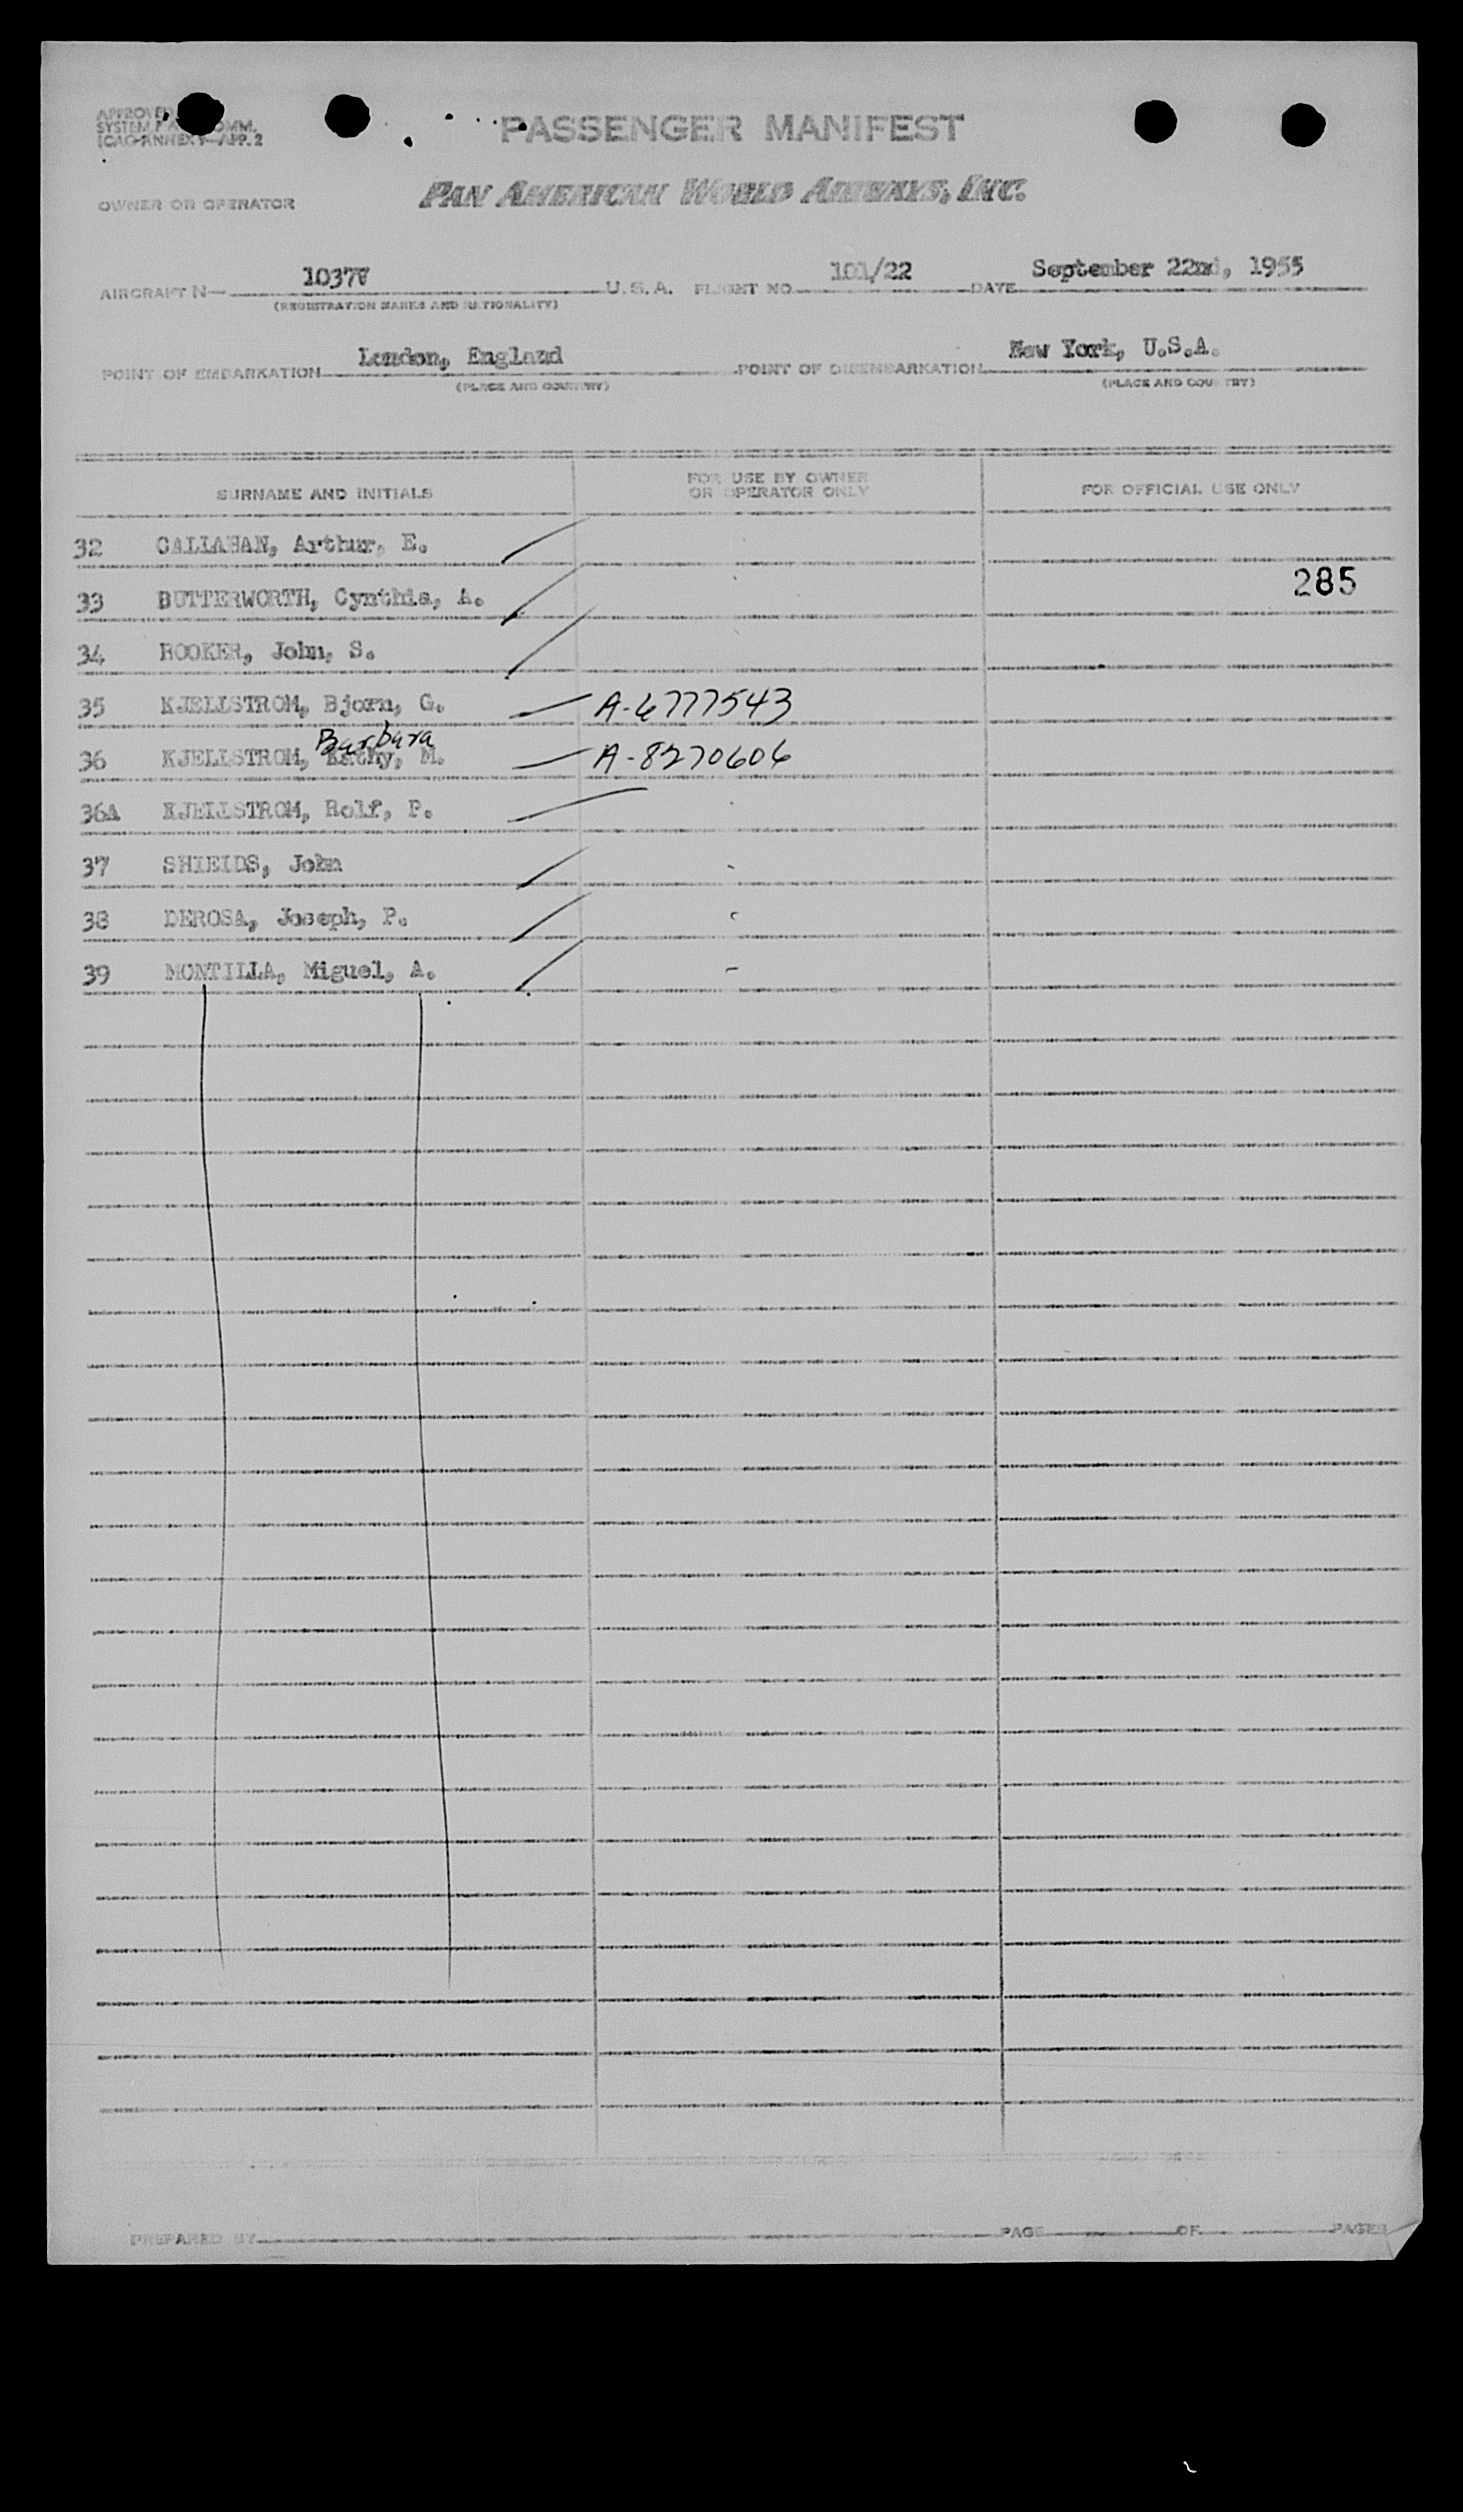 APPROVED
SYSTEM
ICAO ANNEX 9—APP. 2
PASSENGER MANIFEST
OWNER OR OPERATOR PAN AMERICAN WORLD AIRWAYS, INC.
AIRCRAFT N— 1037V U. S. A. FLIGHT NO. 101/22 DATE September 22nd, 1955
(REGISTRATION MARKS AND NATIONALITY)
POINT OF EMBARKATION London, England POINT OF DISEMBARKATION New York, U.S.A.
(PLACE AND COUNTRY) (PLACE AND COUNTRY)
SURNAME AND INITIALS FOR USE BY OWNER OR OPERATOR ONLY FOR OFFICIAL USE ONLY
32 CALLAHAN, Arthur, E.
285
33 BUTTERWORTH, Cynthia, A.
34 ROOKER, John, S.
35 KJELLSTROM, Bjorn, G. A-6777543
Barbara
36 KJELLSTROM, Kathy, M. A-8270606
36A KJELLSTROM, Rolf, P.
37 SHIELDS, John
38 DEROSA, Joseph, P.
39 MONTILLA, Miguel, A.
PREPARED BY PAGE OF PAGES